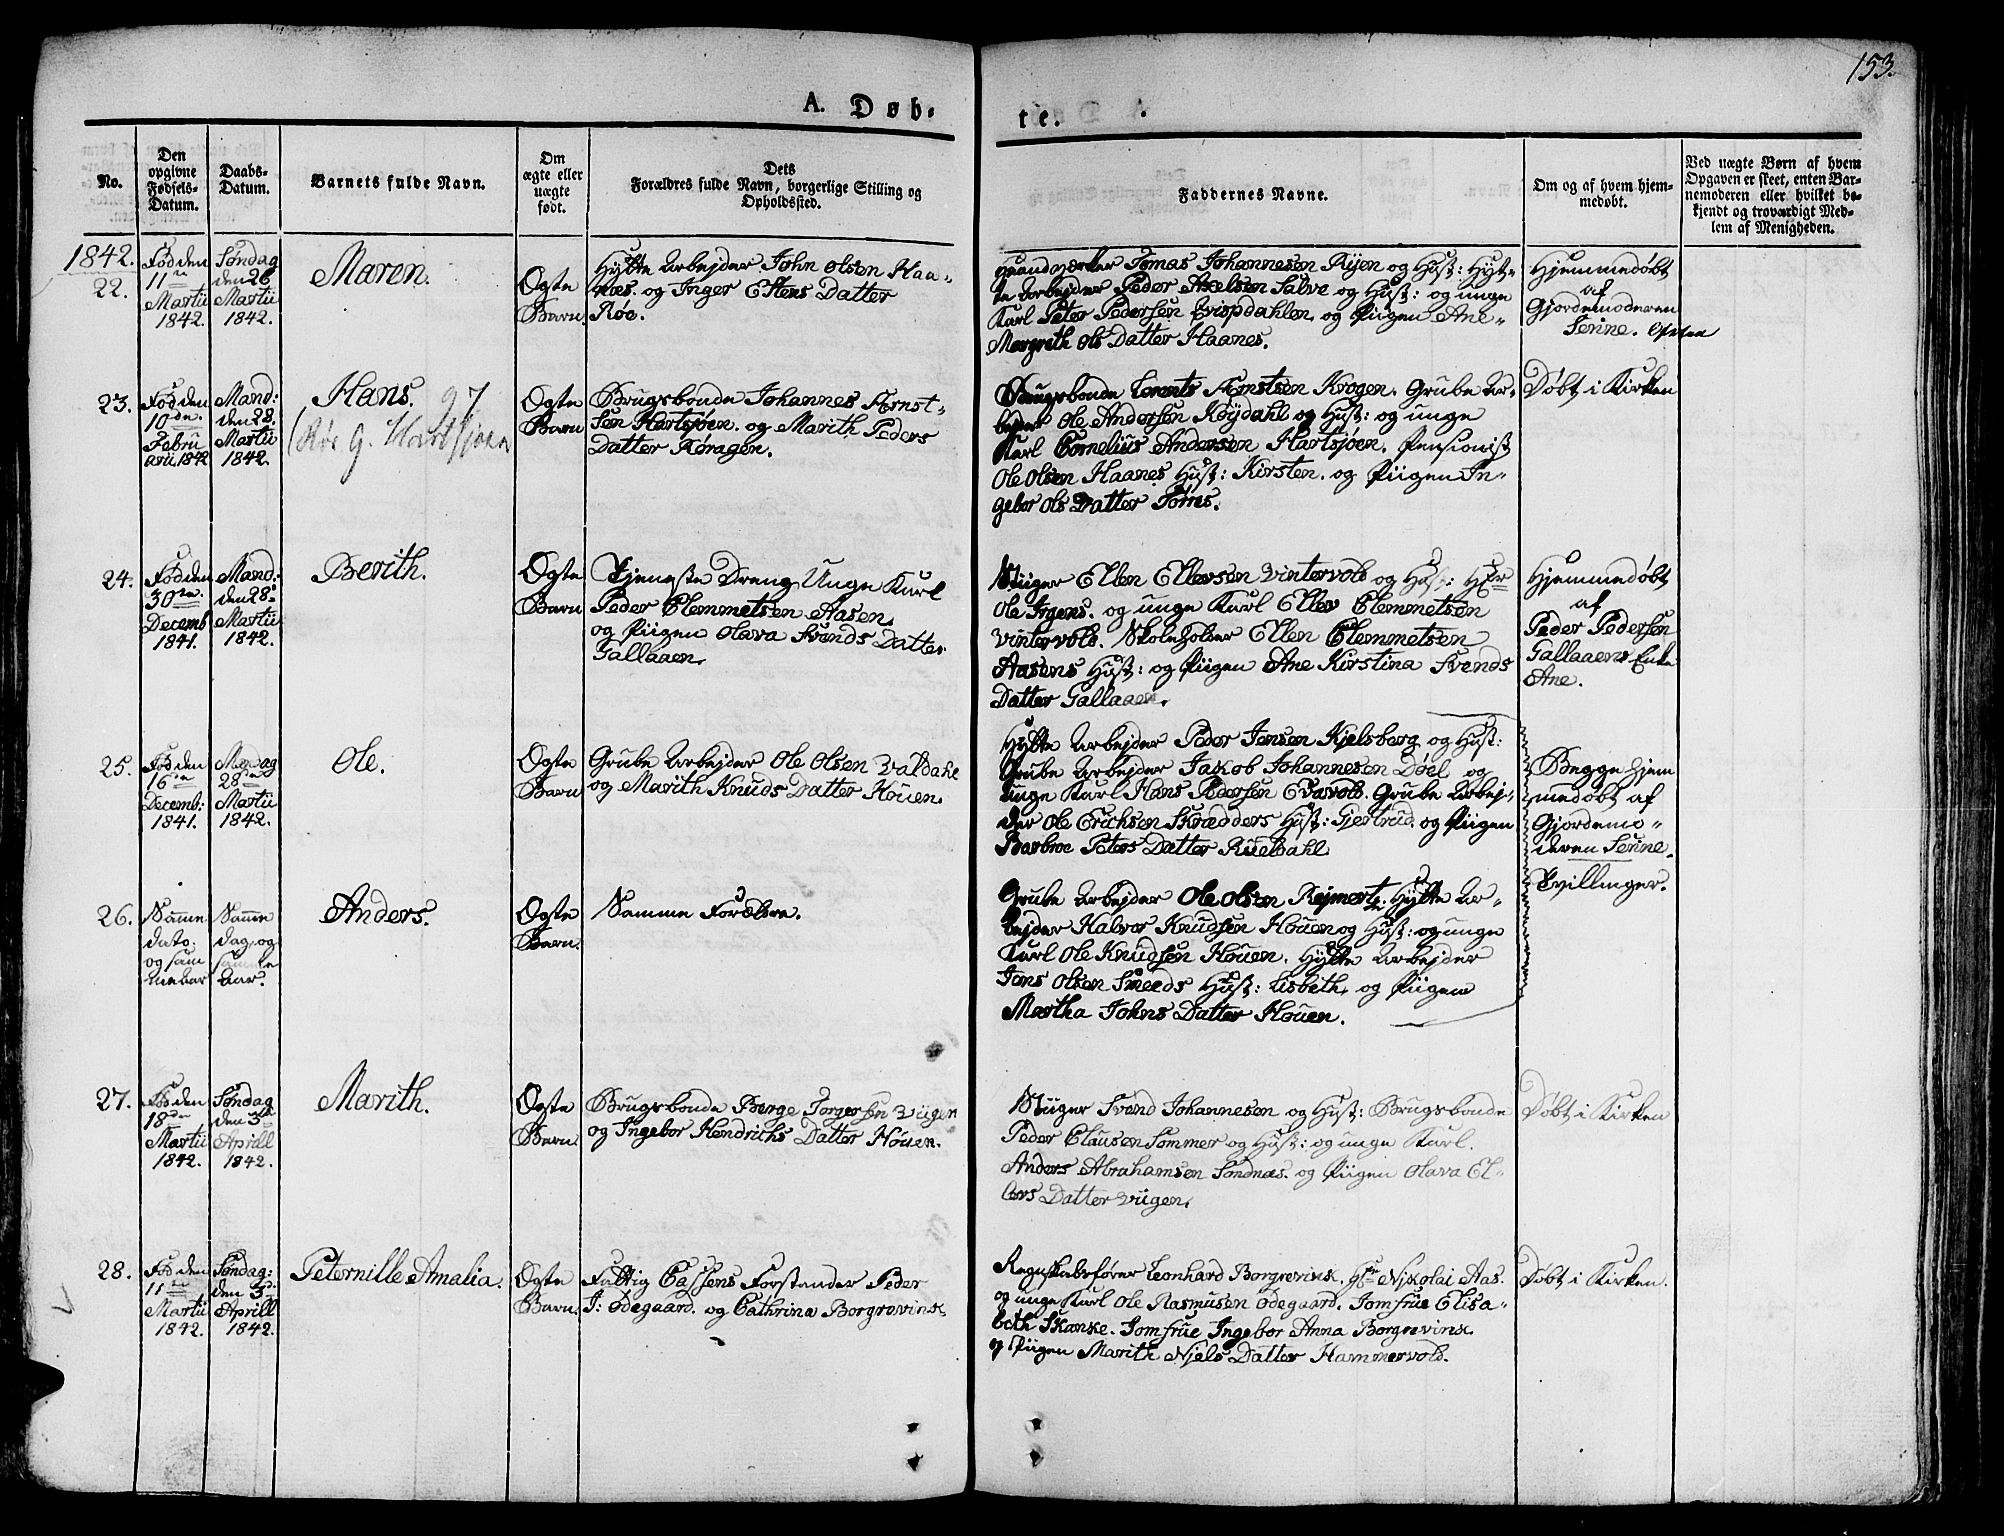 153.
A. Døb-
te.
No.
Den opgivne Fødsels-Datum.
Daabs-Datum.
Barnets fulde Navn.
Om ægte eller uægte født.
Dets
Forældres fulde Navn, borgerlige Stilling og
Opholdssted.
Faddernes Navne.
Om og af hvem hjem-
medøbt.
Ved uægte Børn af hvem
Opgaven er skeet, enten Bar-
nemoderen eller hvilket be-
kjendt og troværdigt Med-
lem af Menigheden.
1842.
22.
Fød den
11te
Martii
1842.
Søndag
den 26
Martii
1842.
Maren.
Ægte
Barn.
Hytte Arbejder John Olsen Haa-
næs. og Inger Estens Datter
Røe.
Haandværker Tomas Johannesen Ryen og Hust: Hyt-
te Arbejder Peder Axelsen Salve og Hust: og unge
Karl Peter Pedersen Qvispdahlen og Piigen Ane
Margrith Ols Datter Haanes.
Hjemmedøbt
af
Gjordemoderen
Serine.
23.
Fød den
10de
Febru
arii 1842
Mand:
den 28.
Martii
1842.
Hans. 97
(Rør G. Hartsjøen
Ægte
Barn
Brugsbonde Johannes Arnst-
sen Hartsjøen. og Marith Peders
Datter Røragen.
Brugsbonde Lorents Arnstsen Krogen. Grube Ar-
bejder Ole Andersen Køydahl og Hust: og unge
Karl Cornelius Andersen Hartsjøen. Pensionist
Ole Olsen Haanes Hust: Kirsten. og Piigen In-
gebor Ols Datter Tøms.
Døbt i Kirken
24.
Fød den
30te
Decemb
1841.
Mand:
den 28de
Martii
1842.
Berith.
Ægte
Barn
Tjeneste Dreng Unge Karl
Peder Clemmetsen Aasen,
og Piigen Olava Svends Datter
Gallaaen.
Stiiger Ellen Ellevsen Vintervold og Hust: Hr
Ole Irgens. og unge Karl Ellev Clemmetsen
Vintervold. Skoleholder Ellen Clemmetsen
Aasens Hust: og Piigen Ane Kirstina Svends
Datter Gallaaen.
Hjemmedøbt
af
Peder Pedersen
Gallaaens Enke
Ane.
25.
Fød den
16de
Decemb:
1841.
Mandag
28de
Martii
1842.
Ole.
Ægte
Barn
Grube Arbejder Ole Olsen Valdahl
og Marith Knuds Datter Houen.
Hytte Arbejder Peder Jensen Kjelsberg og Hust:
Grube Arbejder Jakob Johannesen Døel og
unge Karl Hans Pedersen Evavold. Grube Arbej-
der Ole Erichsen Skrædders Hust: Gjertrud. og Piigen
Barbroe Peters Datter Rueldahl
Begge hjem
medøbt af
Gjordemo-
deren Serine.
Tvillinger.
26.
Samme
dato
og sam
me Aar
Samme
dag og
samme
Aar.
Anders.
Ægte
Barn.
Samme Forældre.
Grube Arbejder Ole Olsen Rejmertz. Hytte Ar-
bejder Halvor Knudsen Houen og Hust: og unge
Karl Ole Knudsen Houen. Hytte Arbejder
Jens Olsen Sneeds Hust: Lisbeth, og Piigen
Martha Johns Datter Houen.
27.
Fød den
18de
Martii
1842.
Søndag
den 3de
Aprill
1842.
Marith.
Ægte
Barn
Brugsbonde Berge Torgersen Vügen
og Ingebor Hendrichs Datter Houen.
Stiiger Svend Johannesen og Hust: Brugsbonde
Peder Clausen Sommer og Hust: og unge Karl
Anders Abrahamsen Sundnæs. og Piigen Olava El-
lers Datter Vügen.
Døbt i Kirken
28.
Fød den
11te
Martii
1842.
Søndag:
den 3de
Aprill
1842.
Peternille Amalia.
Ægte
Barn.
Fattig Cassens Forstander Peder
J: Ødegaard. og Cathrina Borgrevink
Regnskabsfører Leonhard Borgrevink. Hr Nikolai Aas.
og unge Karl Ole Rasmusen Ødegaard. Jomfrue Elisa-
beth Skanke. Jomfrue Ingebor Anna Borgrevink.
og Piigen Marith Njels Datter Hammervold.
Døbt i Kirken.